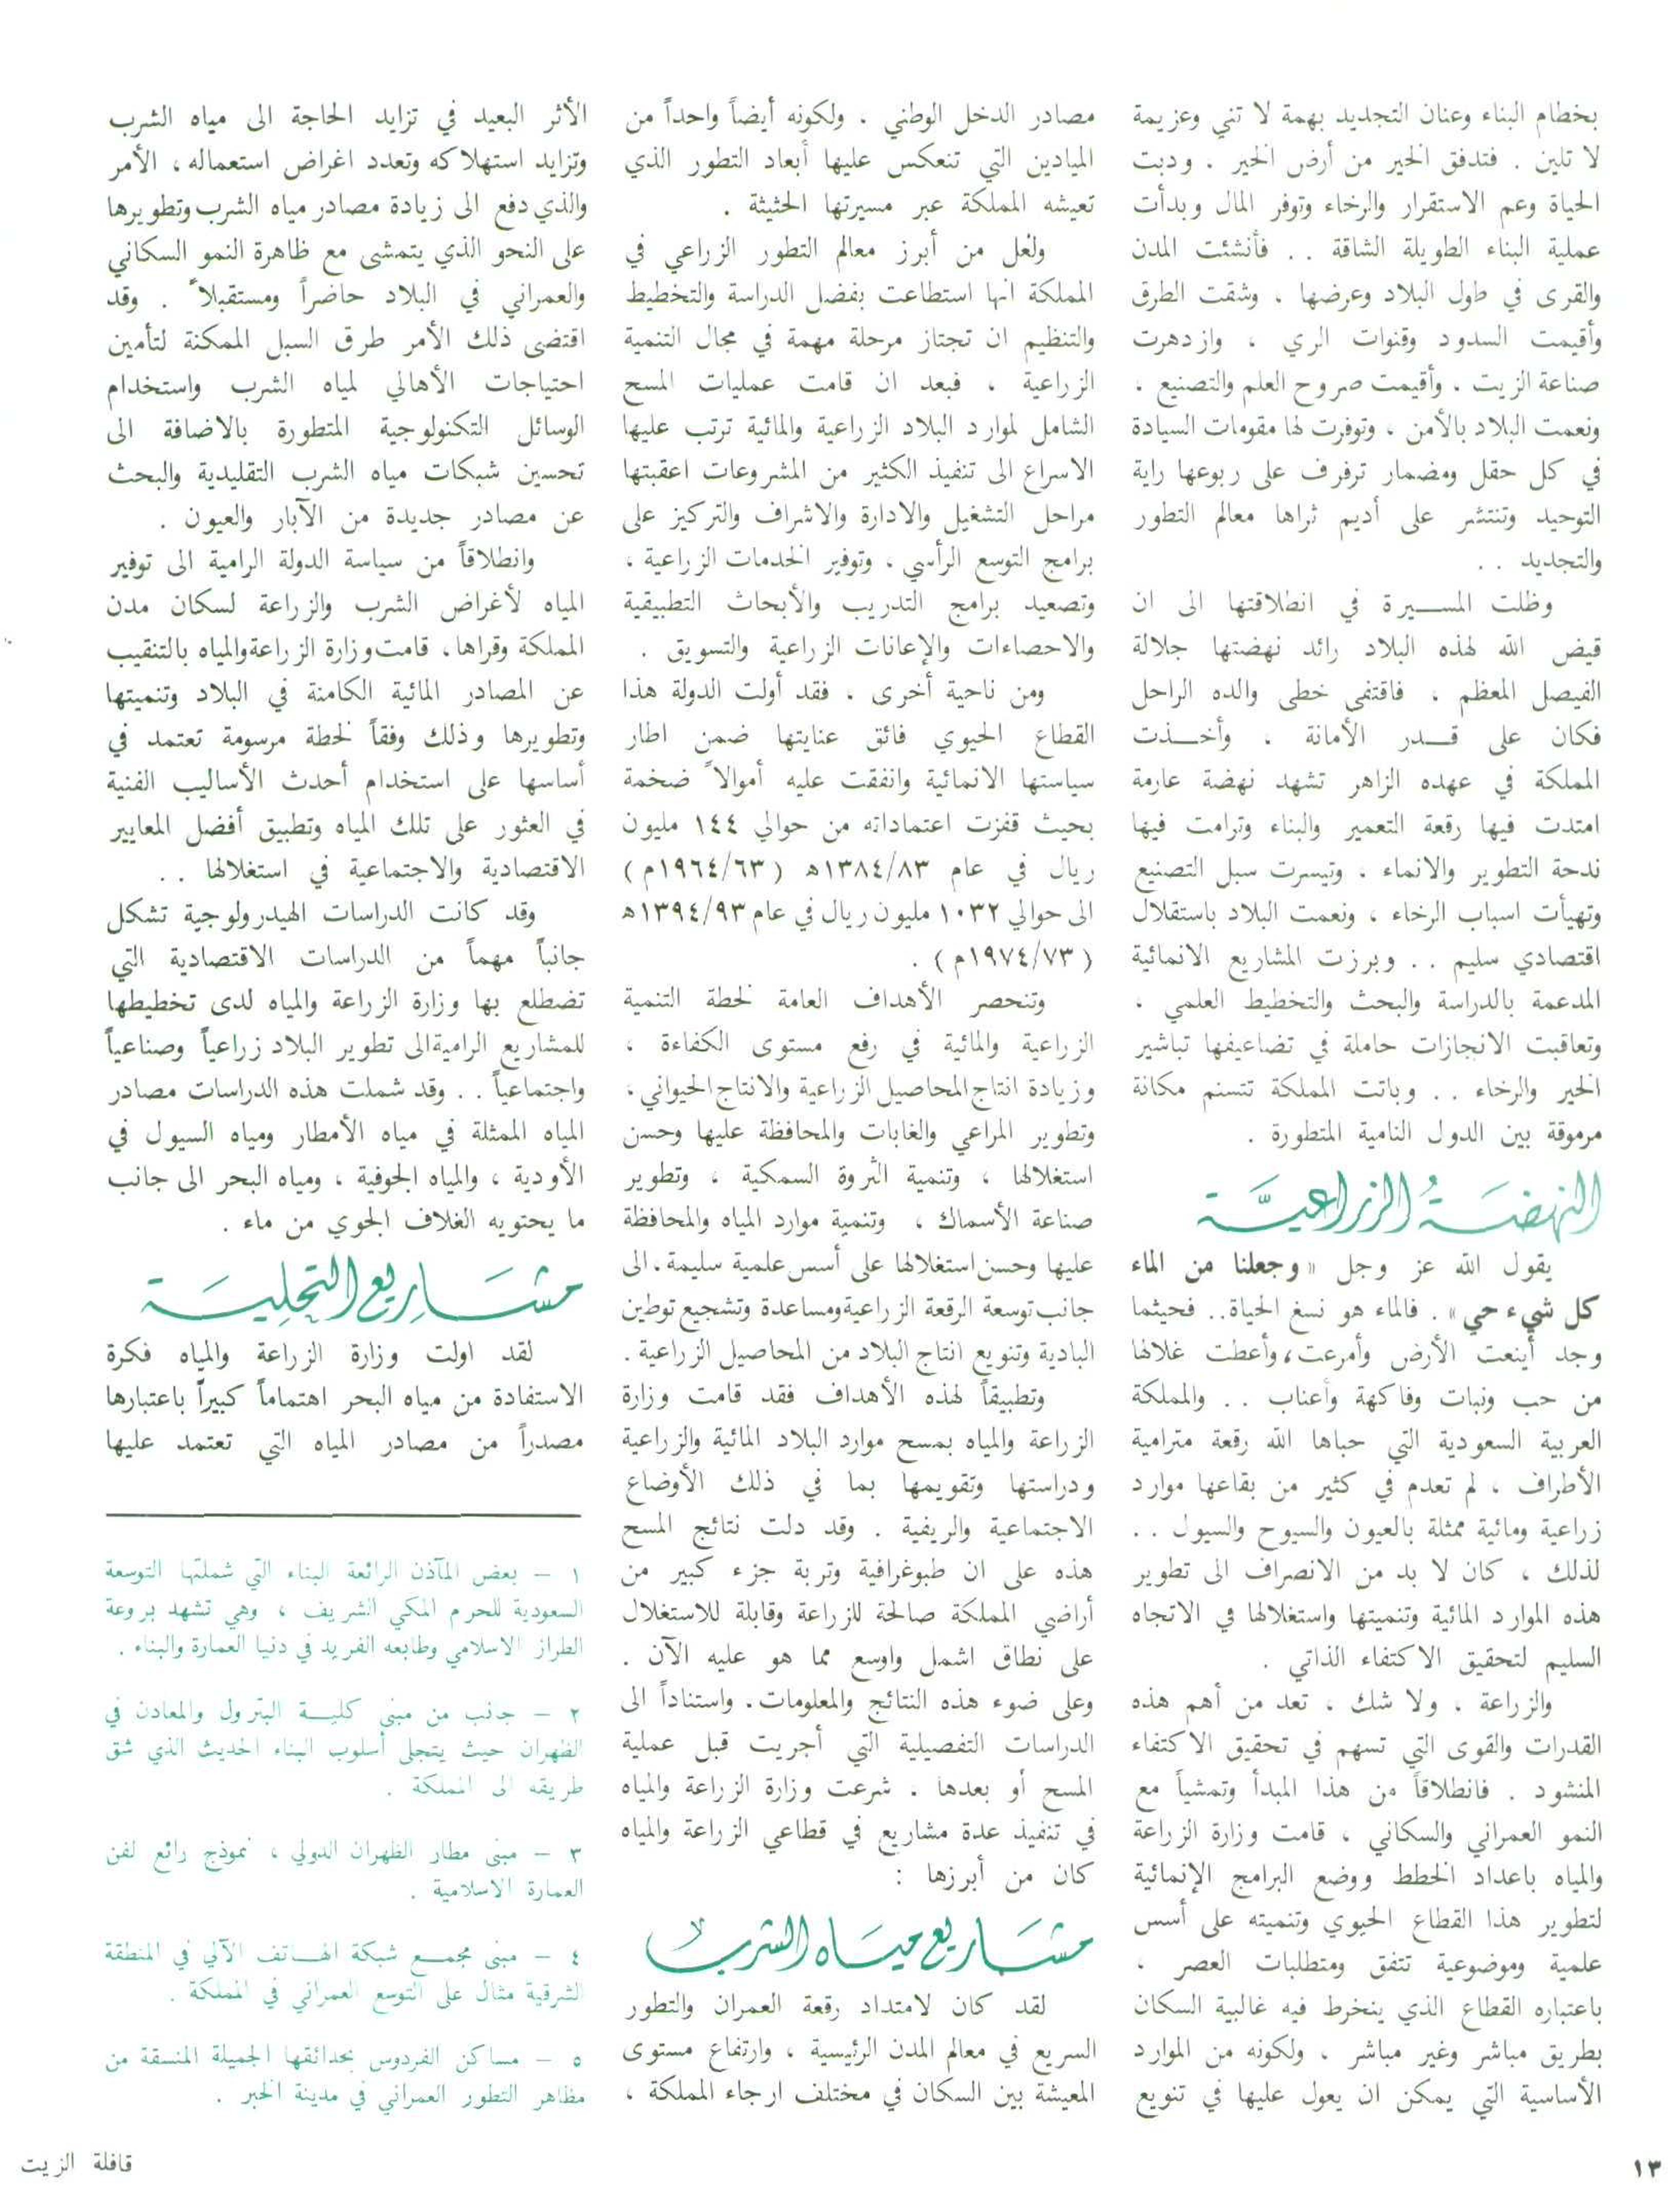 بخطام البناء وعنان التجديد بهمة لا تني وعزيمة
لا تلين . فتدفق الخير من أرض الخير . ودبت
الحياة وعم الاستقرار والرخاء وتوفر المال وبدأت
عملية البناء الطويلة الشاقة . . فأنشئت المدن
والقرى في طول البلاد وعرضها ، وشقت الطرق
وأقيمت السدود وقنوات الري ، وازدهرت
صناعة الزيت ، وأقيمت صروح العلم والتصنيع ،
ونعمت البلاد بالأمن ، وتوفرت لها مقومات السيادة
في كل حقل ومضمار ترفرف على ربوعها راية
التوحيد وتنتشر على أديم ثراها معالم التطور
والتجديد . .
وظلت المسيرة في انطلاقتها الى ان
قيض الله لهذه البلاد رائد نهضتها جلالة
الفيصل المعظم ، فاقتفى خطى والده الراحل
فكان على قدر الأمانة ، وأخذت
المملكة في عهده الزاهر تشهد نهضة عارمة
امتدت فيها رقعة التعمير والبناء وترامت فيها
ندحة التطوير والانماء ، وتيسرت سبل التصنيع
وتهيأت اسباب الرخاء ، ونعمت البلاد باستقلال
اقتصادي سليم . . وبرزت المشاريع الانمائية
المدعمة بالدراسة والبحث والتخطيط العلمي ،
وتعاقبت الانجازات حاملة في تضاعيفها تباشير
الخير والرخاء . . وباتت المملكة تتسنم مكانة
مرموقة بين الدول النامية المتطورة .
النهضَة الزراعيَّة
يقول الله عز وجل « وجعلنا من الماء
كل شيء حي » . فالماء هو نسغ الحياة.. فحيثما
وجد أينعت الأرض وأمرعت، وأعطت غلالها
من حب ونبات وفاكهة وأعناب . . والمملكة
العربية السعودية التي حباها الله رقعة مترامية
الأطراف ، لم تعدم في كثير من بقاعها موارد
زراعية ومائية ممثلة بالعيون والسيوح والسيول . .
لذلك ، كان لا بد من الانصراف الى تطوير
هذه الموارد المائية وتنميتها واستغلالها في الاتجاه
السليم لتحقيق الاكتفاء الذاتي .
والزراعة ، ولا شك ، تعد من أهم هذه
القدرات والقوى التي تسهم في تحقيق الاكتفاء
المنشود . فانطلاقاً من هذا المبدأ وتمشياً مع
النمو العمراني والسكاني ، قامت وزارة الزراعة
والمياه باعداد الخطط ووضع البرامج الإنمائية
لتطوير هذا القطاع الحيوي وتنميته على أسس
علمية وموضوعية تتفق ومتطلبات العصر ،
باعتباره القطاع الذي ينخرط فيه غالبية السكان
بطريق مباشر وغير مباشر ، ولكونه من الموارد
الأساسية التي يمكن ان يعول عليها في تنويع
مصادر الدخل الوطني . ولكونه أيضاً واحداً من
الميادين التي تنعكس عليها أبعاد التطور الذي
تعيشه المملكة عبر مسيرتها الحثيثة .
ولعل من أبرز معالم التطور الزراعي في
المملكة انها استطاعت بفضل الدراسة والتخطيط
والتنظيم ان تجتاز مرحلة مهمة في مجال التنمية
الزراعية ، فبعد ان قامت عمليات المسح
الشامل لموارد البلاد الزراعية والمائية ترتب عليها
الاسراع الى تنفيذ الكثير من المشروعات اعقبتها
مراحل التشغيل والادارة والاشراف والتركيز على
برامج التوسع الرأسي ، وتوفير الخدمات الزراعية ،
وتصعيد برامج التدريب والأبحاث التطبيقية
والاحصاءات والإعانات الزراعية والتسويق .
ومن ناحية أخرى ، فقد أولت الدولة هذا
القطاع الحيوي فائق عنايتها ضمن اطار
سياستها الانمائية وانفقت عليه أموالاً ضخمة
بحيث قفزت اعتماداته من حوالي ١٤٤ مليون
ريال في عام ١٣٨٤/٨٣ه ( ١٩٦٤/٦٣م )
الى حوالي ١٠٣٢ مليون ريال في عام ١٣٩٤/٩٣ه
( ١٩٧٤/٧٣م ) .
وتنحصر الأهداف العامة لخطة التنمية
الزراعية والمائية في رفع مستوى الكفاءة ،
وزيادة انتاج المحاصيل الزراعية والانتاج الحيواني ،
وتطوير المراعي والغابات والمحافظة عليها وحسن
استغلالها ، وتنمية الثروة السمكية ، وتطوير
صناعة الأسماك ، وتنمية موارد المياه والمحافظة
عليها وحسن استغلالها على أسس علمية سليمة ، الى
جانب توسعة الرقعة الزراعية ومساعدة وتشجيع توطين
البادية وتنويع انتاج البلاد من المحاصيل الزراعية .
وتطبيقاً لهذه الأهداف فقد قامت وزارة
الزراعة والمياه بمسح موارد البلاد المائية والزراعية
ودراستها وتقويمها بما في ذلك الأوضاع
الاجتماعية والريفية . وقد دلت نتائج المسح
هذه على ان طبوغرافية وتربة جزء كبير من
أراضي المملكة صالحة للزراعة وقابلة للاستغلال
على نطاق اشمل واوسع مما هو عليه الآن .
وعلى ضوء هذه النتائج والمعلومات . واستناداً الى
الدراسات التفصيلية التي أجريت قبل عملية
المسح أو بعدها . شرعت وزارة الزراعة والمياه
في تنفيذ عدة مشاريع في قطاعي الزراعة والمياه
كان من أبرزها :
مشَاريع ميَاه الشرب
لقد كان لامتداد رقعة العمران والتطور
السريع في معالم المدن الرئيسية ، وارتفاع مستوى
المعيشة بين السكان في مختلف ارجاء المملكة ،
الأثر البعيد في تزايد الحاجة الى مياه الشرب
وتزايد استهلاكه وتعدد اغراض استعماله ، الأمر
والذي دفع الى زيادة مصادر مياه الشرب وتطويرها
على النحو الذي يتمشى مع ظاهرة النمو السكاني
والعمراني في البلاد حاضراً ومستقبلاً . وقد
اقتضى ذلك الأمر طرق السبل الممكنة لتأمين
احتياجات الأهالي لمياه الشرب واستخدام
الوسائل التكنولوجية المتطورة بالاضافة الى
تحسين شبكات مياه الشرب التقليدية والبحث
عن مصادر جديدة من الآبار والعيون .
وانطلاقاً من سياسة الدولة الرامية الى توفير
المياه لأغراض الشرب والزراعة لسكان مدن
المملكة وقراها، قامت وزارة الزراعة والمياه بالتنقيب
عن المصادر المائية الكامنة في البلاد وتنميتها
وتطويرها وذلك وفقاً لخطة مرسومة تعتمد في
أساسها على استخدام أحدث الأساليب الفنية
في العثور على تلك المياه وتطبيق أفضل المعايير
الاقتصادية والاجتماعية في استغلالها . .
وقد كانت الدراسات الهيدرولوجية تشكل
جانباً مهماً من الدراسات الاقتصادية التي
تضطلع بها وزارة الزراعة والمياه لدى تخطيطها
للمشاريع الرامية الى تطوير البلاد زراعياً وصناعياً
واجتماعياً . . وقد شملت هذه الدراسات مصادر
المياه الممثلة في مياه الأمطار ومياه السيول في
الأودية ، والمياه الجوفية ، ومياه البحر الى جانب
ما يحتويه الغلاف الجوي من ماء .
مشَاريع التحلِيَة
لقد اولت وزارة الزراعة والمياه فكرة
الاستفادة من مياه البحر اهتماماً كبيراً باعتبارها
مصدراً من مصادر المياه التي تعتمد عليها
١ – بعض المآذن الرائعة البناء التي شملتها التوسعة
السعودية للحرم المكي الشريف ، وهي تشهد بروعة
الطراز الاسلامي وطابعه الفريد في دنيا العمارة والبناء .
٢ – جانب من مبنى كلية البترول والمعادن في
الظهران حيث يتجلى أسلوب البناء الحديث الذي شق
طريقه الى المملكة .
٣ – مبنى مطار الظهران الدولي ، نموذج رائع لفن
العمارة الاسلامية .
٤ – مبنى مجمع شبكة الهاتف الآلي في المنطقة
الشرقية مثال على التوسع العمراني في المملكة .
٥ – مساكن الفردوس بحدائقها الجميلة المنسقة من
مظاهر التطور العمراني في مدينة الخبر .
١٣
قافلة الزيت